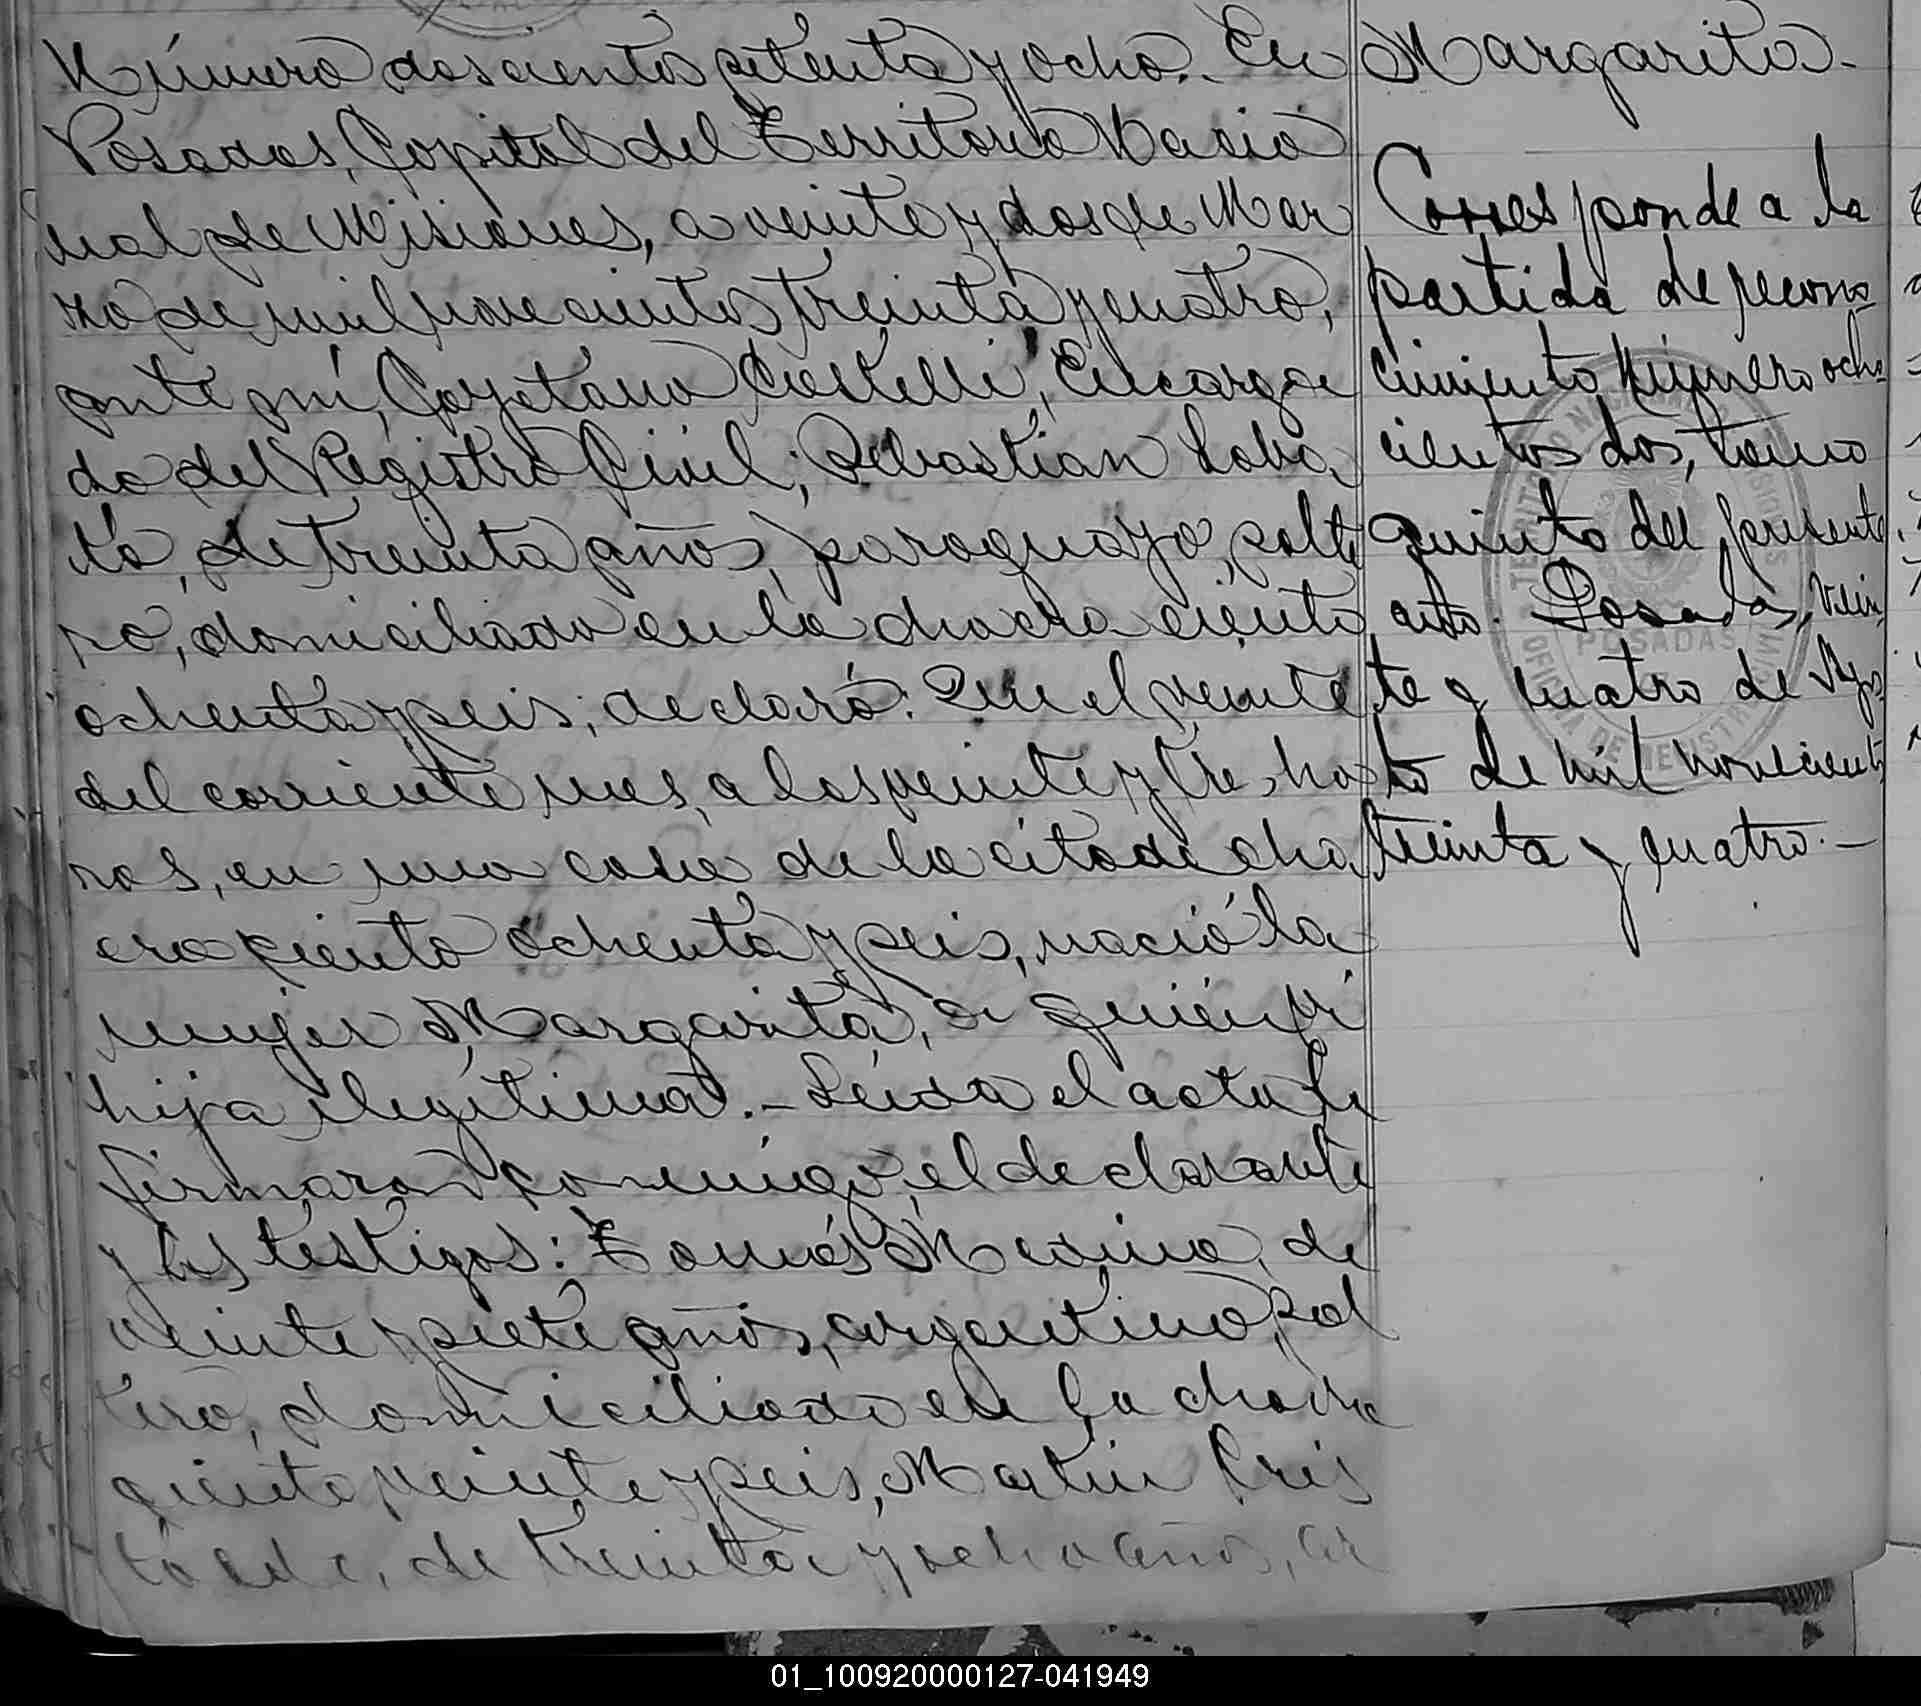 Número doscientos setenta y ocho.- En
Posadas, Capital del Territorio Nacio
nal de Misiones, a veinte y dos de Mar
zo de mil novecientos treinta y cuatro,
ante mí, Cayetano Castelli, Encarga
do del Registro Civil; Sebastian Loba
to, de treinta años, paraguayo, solte
ro, domiciliado en la chacra ciento
ochenta y seis, declaró: Que el veinte
del corriente mes, a las veinte y tres ho
ras, en una casa de la citada cha
cra ciento ochenta y seis, nació la
mujer Margarita, a quién vi
hija ilegítima.- Leída el acta la
firmaron conmigo, el declarante
y los testigos: Tomás Medina, de
veinte y siete años, argentino, sol
tero, domiciliado en la chacra
ciento veinte y seis, Martin Cris
taldo, de treinta y ocho años, ar
Margarita.-
Corresponde a la
partida de recono
cimiento Número ocho
cientos dos, tomo
quinto del presente
año. Posadas, vein
te y cuatro de Agos
to de mil novecientos
treinta y cuatro.-
POSADAS
01_100920000127-041949